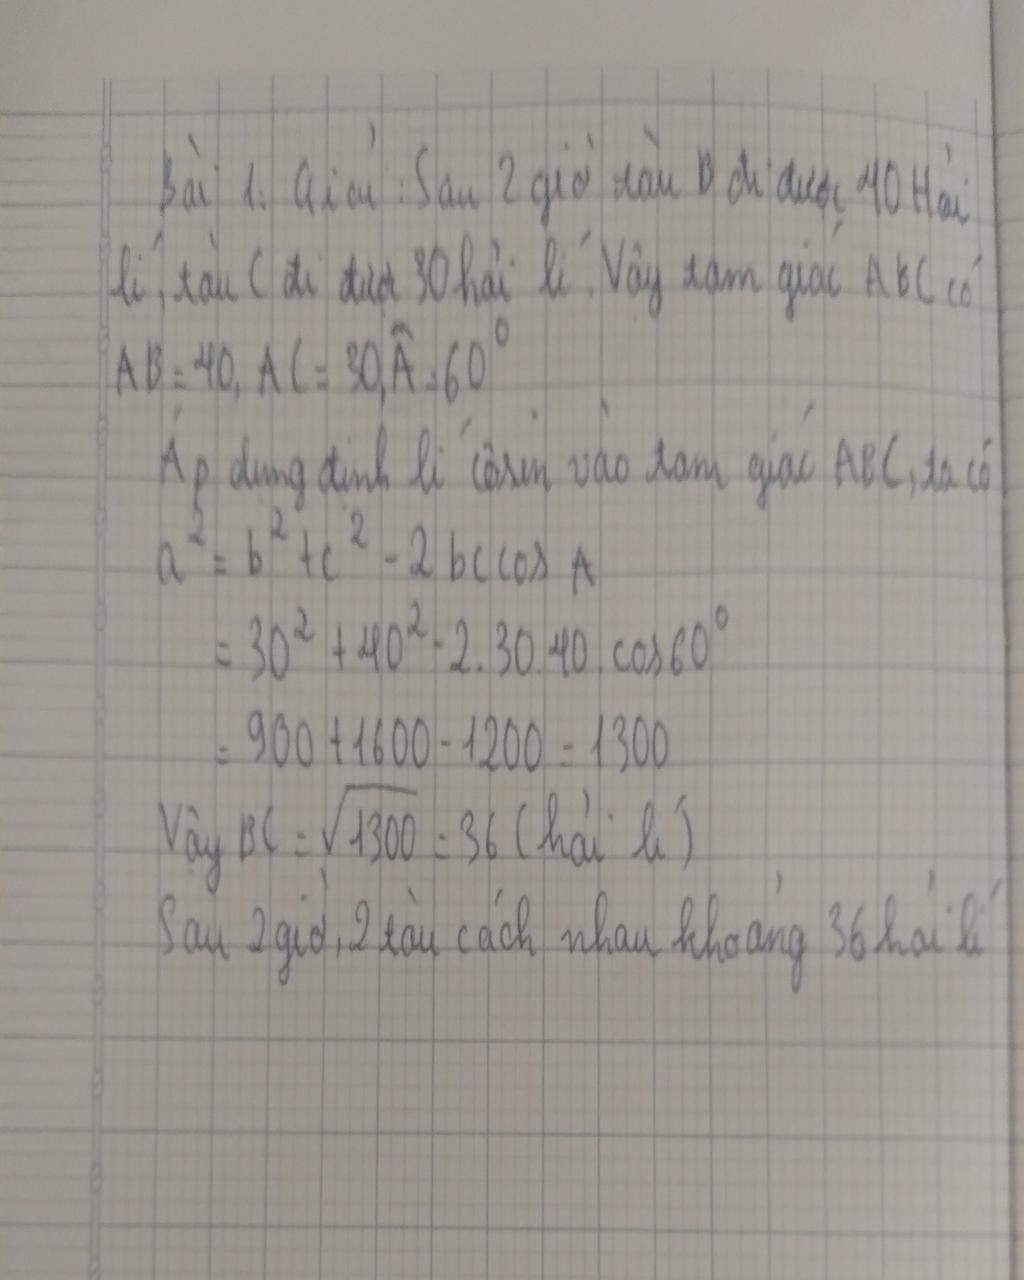 Bài 1. Giải: Sau 2 giờ tàu B đi được 40 Hải
lí, tàu C đi được 30 hải lí. Vậy tam giác ABC có
AB = 40, AC = 30, Â = 60⁰
Áp dụng định lí côsin vào tam giác ABC, ta có
a² = b² + c² - 2bc cos A
= 30² + 40² - 2.30.40.cos60⁰
= 900 + 1600 - 1200 = 1300
Vậy BC = √1300 = 36 (hải lí)
Sau 2 giờ, 2 tàu cách nhau khoảng 36 hải lí